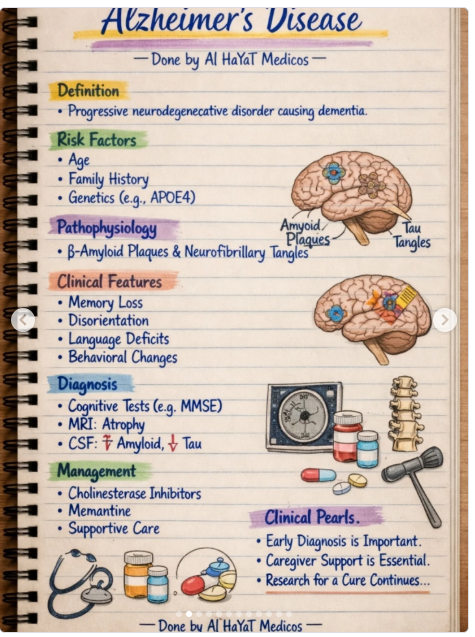 Alzheimer's Disease
— Done by Al HaYaT Medicos —
Definition
• Progressive neurodegenecative disorder causing dementia.
Risk Factors
• Age
• Family History
• Genetics (e.g., APOE4)
Pathophysiology
• β-Amyloid Plaques & Neurofibrillary Tangles
Amyoid
Plaques
Tau
Tangles
Clinical Features
• Memory Loss
• Disorientation
• Language Deficits
• Behavioral Changes
Diagnosis
• Cognitive Tests (e.g. MMSE)
• MRI: Atrophy
• CSF: ↑ Amyloid, ↓ Tau
Management
• Cholinesterase Inhibitors
• Memantine
• Supportive Care
Clinical Pearls.
• Early Diagnosis is Important.
• Caregiver Support is Essential.
• Research for a Cure Continues...
— Done by Al HaYaT Medicos —